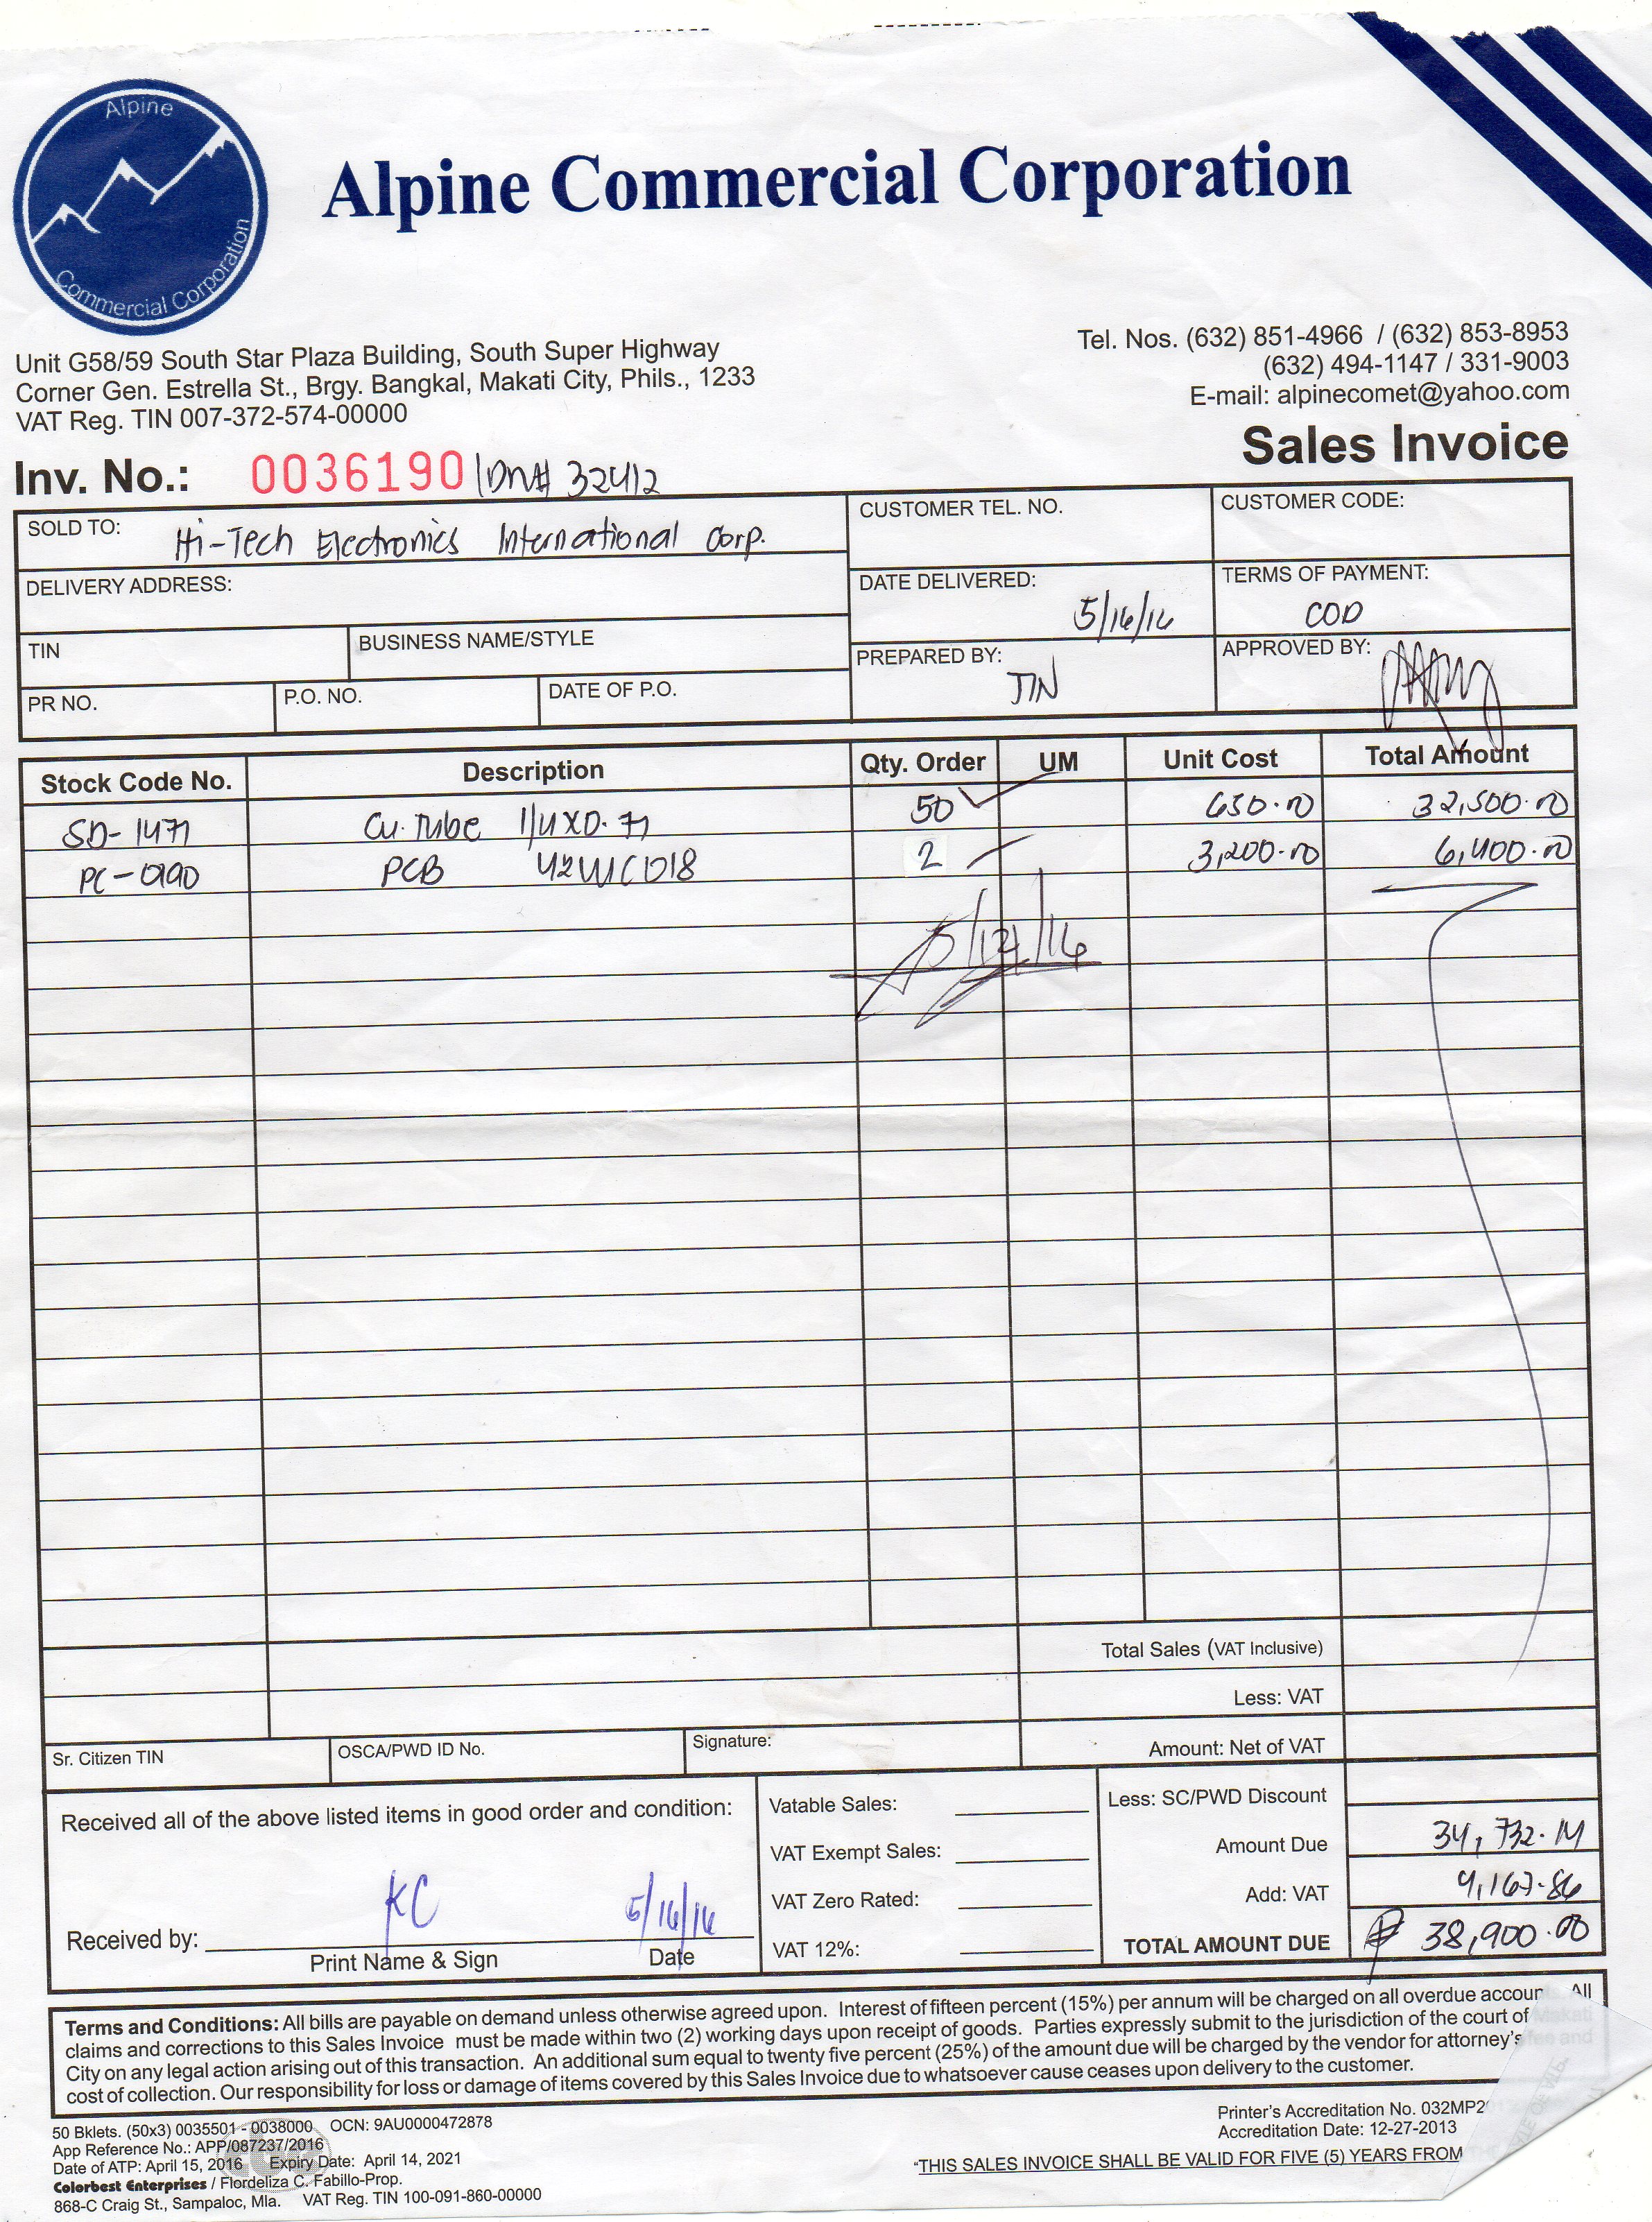 Alpine
Commercial Corporation
Alpine Commercial Corporation
Unit G58/59 South Star Plaza Building, South Super Highway
Corner Gen. Estrella St., Brgy. Bangkal, Makati City, Phils., 1233
VAT Reg. TIN 007-372-574-00000
Tel. Nos. (632) 851-4966 / (632) 853-8953
(632) 494-1147 / 331-9003
E-mail: alpinecomet@yahoo.com
Sales Invoice
Inv. No.: 0036190 | DN# 32412
SOLD TO: Hi-Tech Electronics International Corp.
CUSTOMER TEL. NO.
CUSTOMER CODE:
DELIVERY ADDRESS:
DATE DELIVERED: 5/16/16
TERMS OF PAYMENT: COD
TIN
BUSINESS NAME/STYLE
PREPARED BY: TIN
APPROVED BY:
PR NO.
P.O. NO.
DATE OF P.O.
Stock Code No. Description Qty. Order UM Unit Cost Total Amount
SD-1471 Cu. Tube 1/4X0.71 50 650.00 32,500.00
PC-0190 PCB 2 3,200.00 6,400.00
Total Sales (VAT Inclusive)
Less: VAT
Sr. Citizen TIN
OSCA/PWD ID No.
Signature:
Amount: Net of VAT
Received all of the above listed items in good order and condition:
Vatable Sales:
Less: SC/PWD Discount
VAT Exempt Sales:
Amount Due 34,732.14
VAT Zero Rated:
Add: VAT 4,167.86
KC 5/16/16
Received by:
Print Name & Sign
Date
VAT 12%:
TOTAL AMOUNT DUE ₱ 38,900.00
Terms and Conditions: All bills are payable on demand unless otherwise agreed upon. Interest of fifteen percent (15%) per annum will be charged on all overdue accoun All
claims and corrections to this Sales Invoice must be made within two (2) working days upon receipt of goods. Parties expressly submit to the jurisdiction of the court of Makati
City on any legal action arising out of this transaction. An additional sum equal to twenty five percent (25%) of the amount due will be charged by the vendor for attorney's fee and
cost of collection. Our responsibility for loss or damage of items covered by this Sales Invoice due to whatsoever cause ceases upon delivery to the customer.
50 Bklets. (50x3) 0035501 - 0038000 OCN: 9AU0000472878
App Reference No.: APP/087237/2016
Date of ATP: April 15, 2016 Expiry Date: April 14, 2021
Colorbest Enterprises / Flordeliza C. Fabillo-Prop.
868-C Craig St., Sampaloc, Mla. VAT Reg. TIN 100-091-860-00000
Printer's Accreditation No. 032MP2
Accreditation Date: 12-27-2013
"THIS SALES INVOICE SHALL BE VALID FOR FIVE (5) YEARS FROM